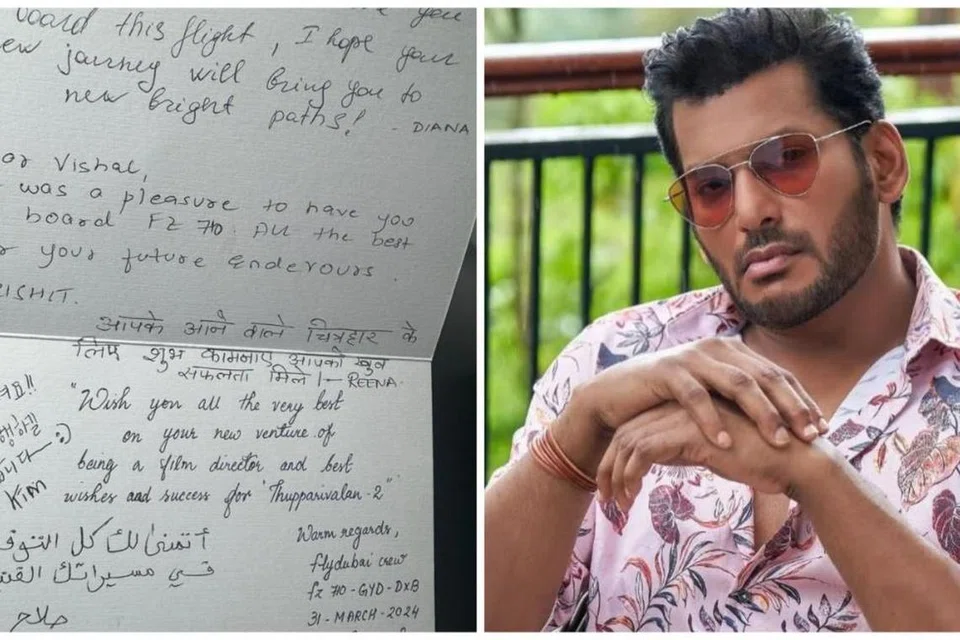 you
board this flight, I hope your
ew journey will bring you to
new bright paths! - DIANA
ar Vishal,
was a pleasure to have you
board FZ 710. All the best
r your future enderours.
ISHIT.
आपके आने वाले चित्रहार के
लिए शुभ कामनाए आपको खुब
सफलता मिले।- REENA.
"Wish you all the very best
on your new venture of
being a film director and best
wishes and success for "Thupparivalan-2"
요!!
행하길
니다~ :)
Kim
أتمنى لك كل التوف
في مسيراتك
صلاح
Warm regards,
flydubai crew
fz 710-GYD-DXB
31-MARCH-2024